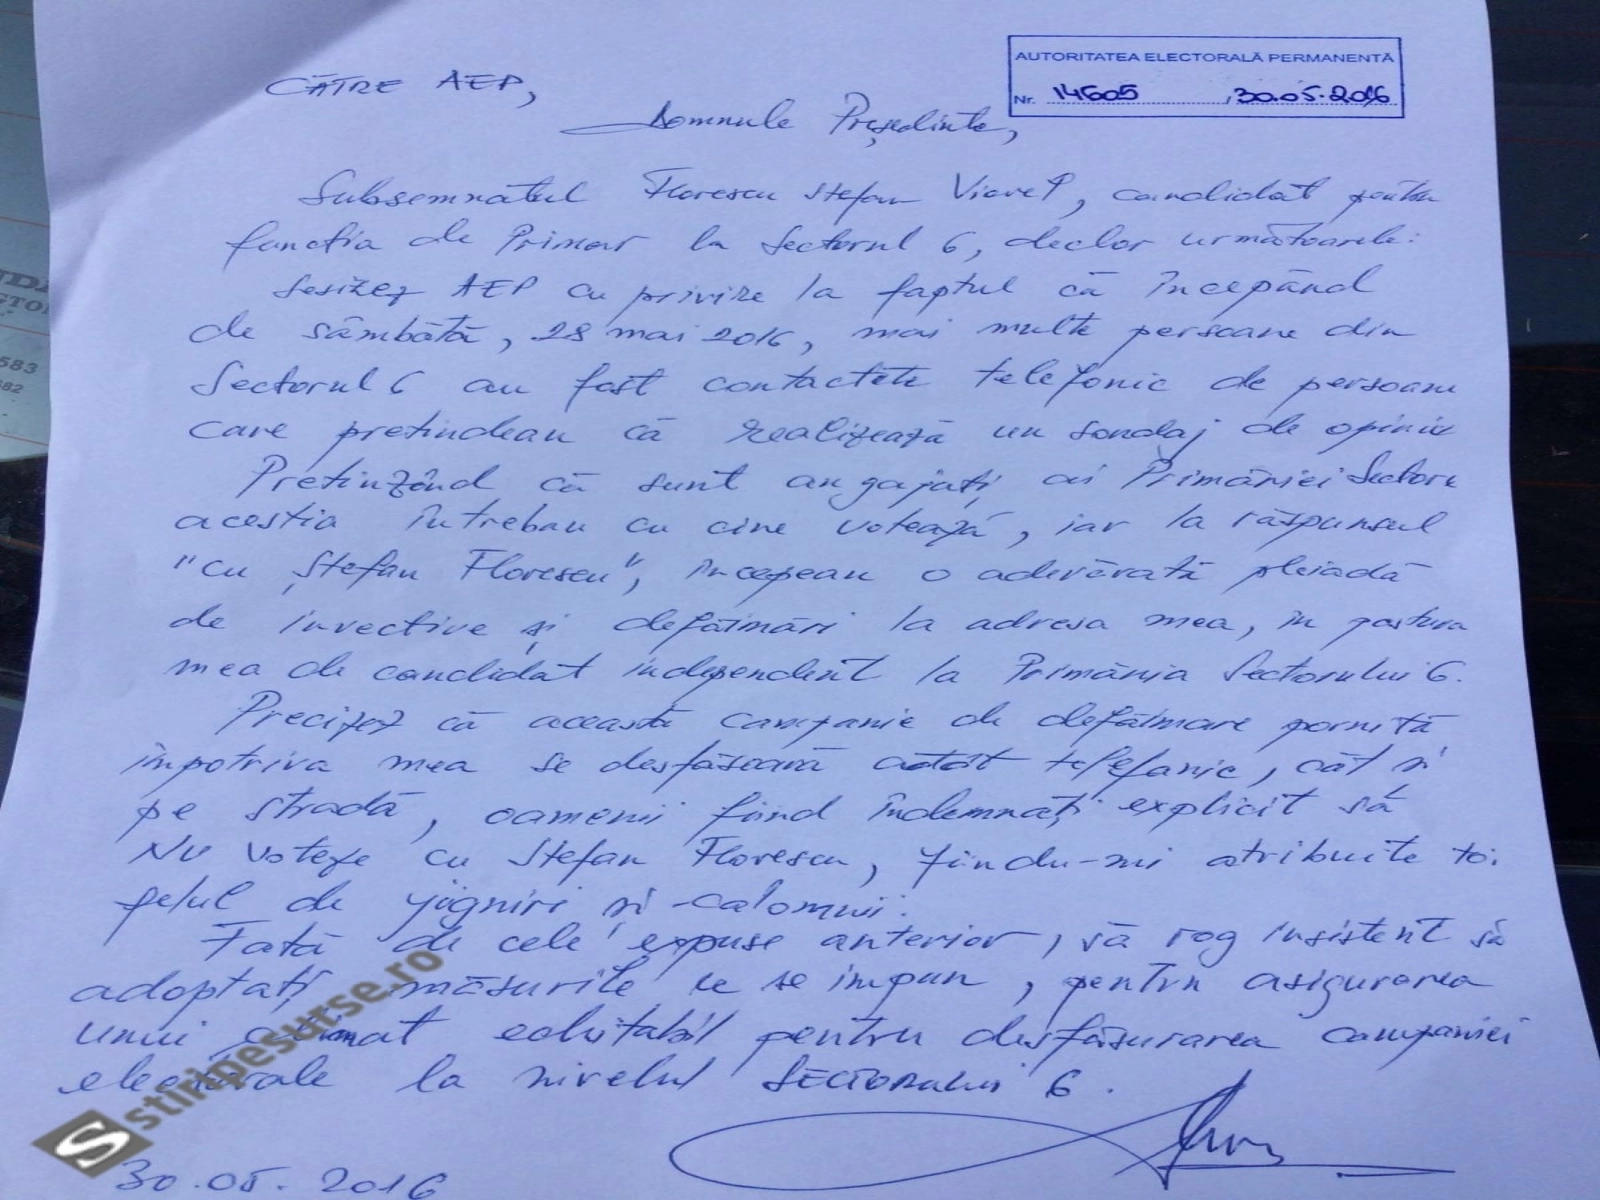 AUTORITATEA ELECTORALĂ PERMANENTĂ
Nr. 14605, 30.05.2016
CĂTRE AEP,
Domnule Președinte,
Subsemnatul Florescu Stefan Viorel, candidat pentru
functia de Primar la Sectorul 6, declar următoarele:
Sesizez AEP cu privire la faptul că începând
de sâmbătă, 28 mai 2016, mai multe persoane din
Sectorul 6 au fost contactate telefonic de persoane
care pretindeau că realizează un sondaj de opinie
Pretinzând că sunt angajați ai Primăriei Sector
acestia întrebau cu cine votează, iar la răspunsul
"cu Ștefan Florescu", începeau o adevărată pleiadă
de invective și defăimări la adresa mea, în postura
mea de candidat independent la Primăria Sectorului 6.
Precizez că această campanie de defăimare pornită
împotriva mea se desfăsoară atât telefonic, cât și
pe stradă, oamenii fiind îndemnați explicit să
NU voteze cu Stefan Florescu, fiindu-mi atribuite to
felul de jigniri și calomnii.
Fată de cele expuse anterior, vă rog insistent să
adoptați măsurile ce se impun, pentru asigurarea
unui climat echitabil pentru desfăsurarea campaniei
electorale la nivelul Sectorului 6.
30.05.2016
S stiripesurse.ro